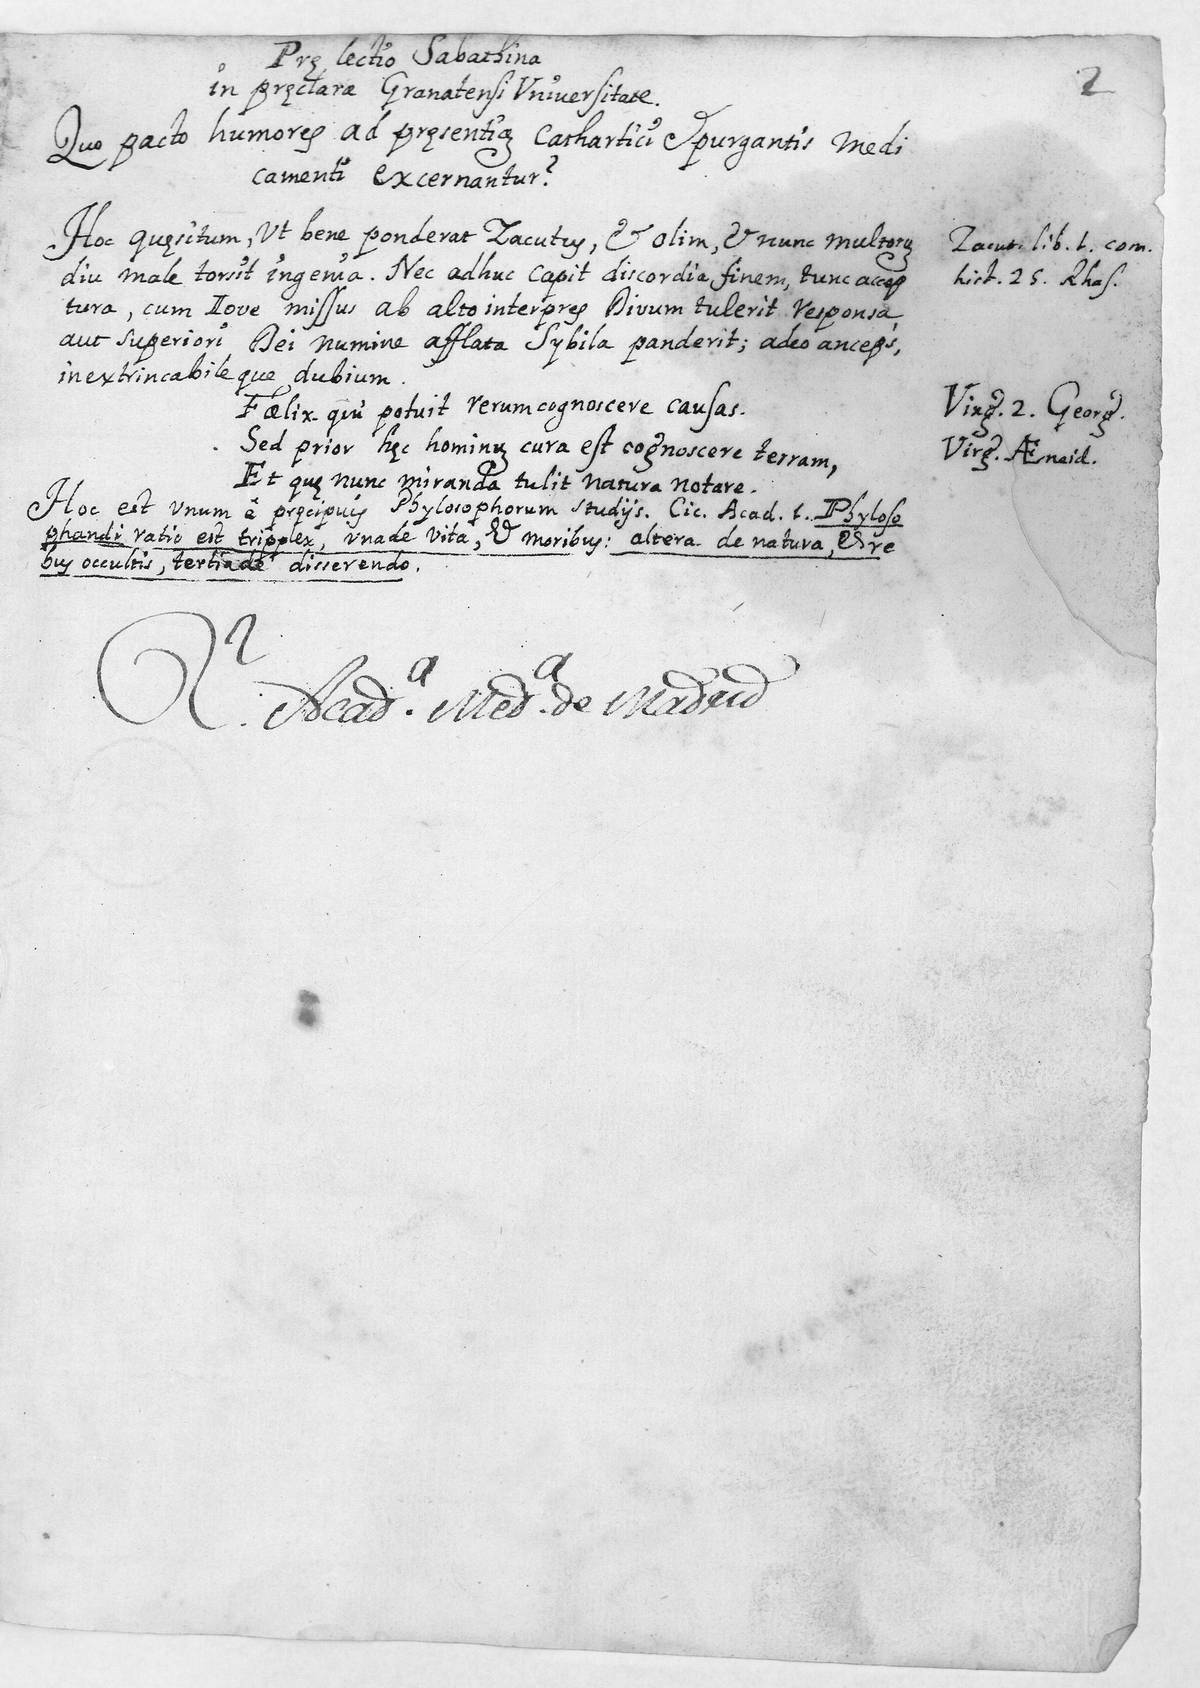 2
Prę lectio Sabathina
in pręclara Granatensi Vniuersitate.
Quo pacto humores ad pręsentiã Cathartici, & purgantis Medi
camenti excernantur?
Hoc quęsitum, Vt bene ponderat Zacutus, & olim, & nunc multorũ
Zacut. lib. 1. com.
diu male torsit ingenia. Nec adhuc capit discordia finem, tunc accep
hist. 25. Rhas.
tura, cum Iove missus ab alto interpres Divum tulerit responsa,
aut superiori Dei numine afflata Sybila panderit; adeo anceps,
inextrincabile que dubium.
Fælix qui potuit rerum cognoscere causas.
Virg. 2. Georg.
Sed prior hęc hominũ cura est cognoscere terram,
Virg. Æneid.
Et quę nunc miranda tulit natura notare.
Hoc est vnum è pręcipuis Phylosophorum studijs. Cic. Acad. 1. Phyloso
phandi ratio est tripplex, vna de vita, & moribus: altera de natura, & re
bus occultis, tertia de disserendo.
Rl. Acad.a Med.a de Madrid